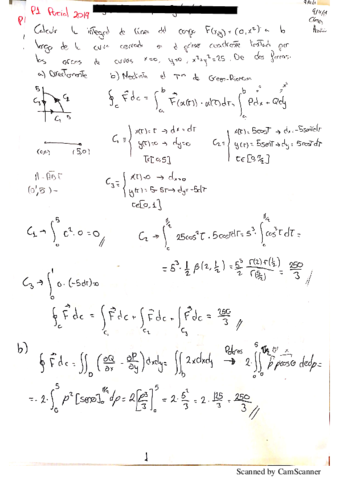 P1 Parcial 2019
Calcular la integral de línea del campo F(x,y) = (0, x²) a lo
largo de la curva cerrada en el primer cuadrante limitada por
los arcos de curvas x=0, y=0, x²+y²=25. De dos formas:
a) Directamente b) Mediante el Tma de Green-Riemann
∮_C F dc = ∫_a^b F(α(t))·α'(t)dt = ∫_a^b Pdx + Qdy
5 C₃ C₂ C₁ 5
C₁ = { x(t)=t → dx=dt
y(t)=0 → dy=0
t∈[0,5]
C₂ = { x(t)=5cost → dx=-5sentdt
y(t)=5sent → dy=5costdt
t∈[0,π/2]
(0,0) (5,0)
C₃ = { x(t)=0 → dx=0
y(t)=5-5t → dy=-5dt
t∈[0,1]
C₁ → ∫_0^5 t²·0 = 0 //
C₂ → ∫_0^{π/2} 25cos²t · 5costdt = 5³·∫_0^{π/2} cos³t dt =
= 5³·1/2 β(2,1/2) = 5³/2 Γ(2)Γ(1/2)/Γ(5/2) = 250/3 //
C₃ → ∫_0^1 0·(-5dt) = 0
∮_C F dc = ∫_{C₁} F dc + ∫_{C₂} F dc + ∫_{C₃} F dc = 250/3 //
b)
∮ F dc = ∬_D (∂Q/∂x - ∂P/∂y) dxdy = ∬_D 2x dxdy → Polares → 2·∫_0^5 ∫_0^{π/2} ρ ρcosθ dθdρ =
= 2·∫_0^5 ρ² [senθ]_0^{π/2} dρ = 2[ρ³/3]_0^5 = 2·5³/3 = 2·125/3 = 250/3 //
1
Scanned by CamScanner